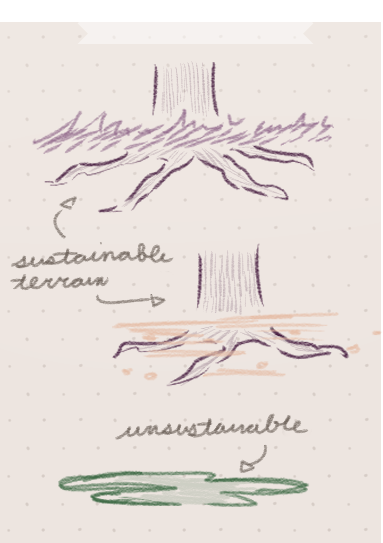 sustainable
terrain
unsustainable